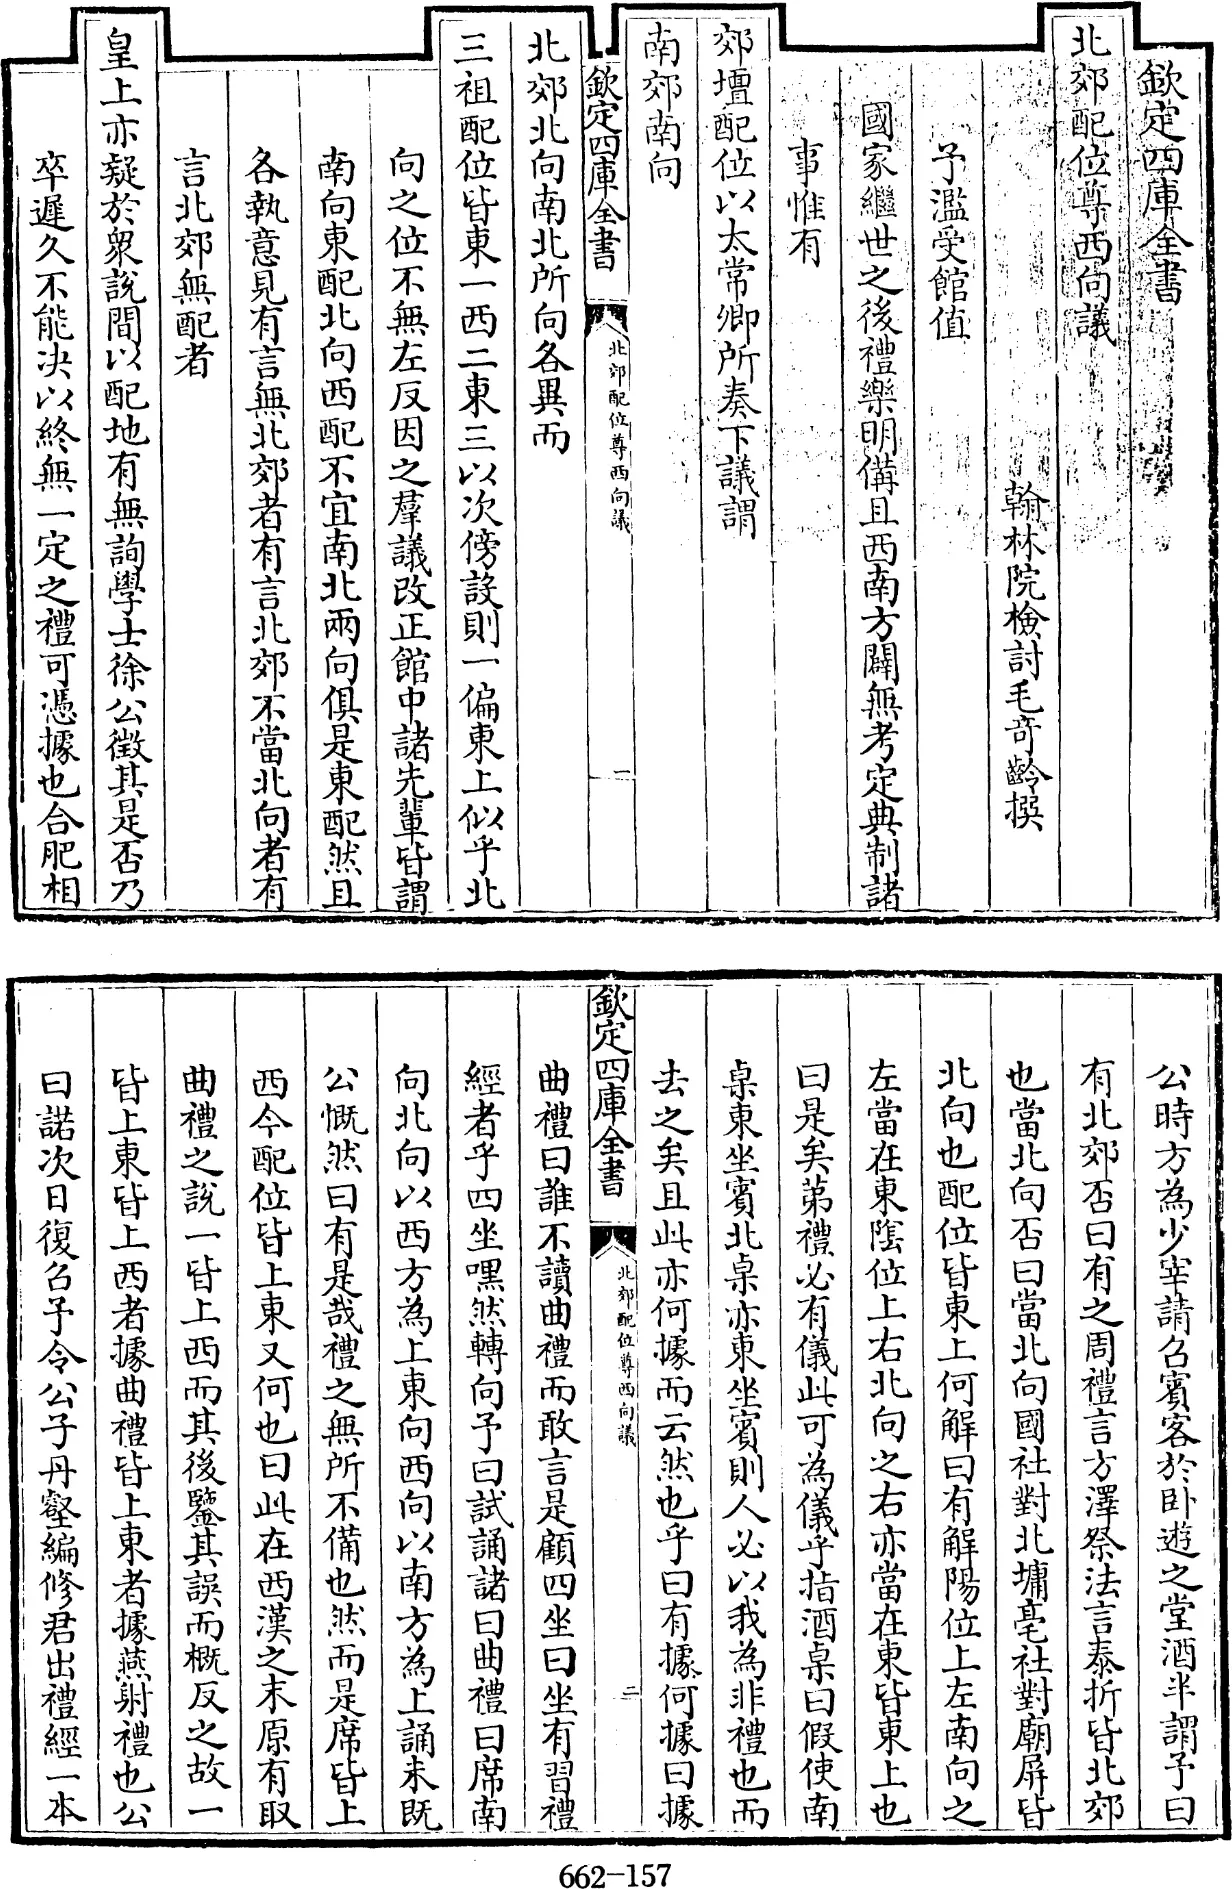 欽定四庫全書
北郊配位尊西向議
翰林院檢討毛奇齡撰
予濫受館值
國家繼世之後禮樂明備且西南方闢無考定典制諸
事惟有
郊壇配位以太常卿所奏下議謂
南郊南向
欽定四庫全書
北郊配位尊西向議
一
北郊北向南北所向各異而
三祖配位皆東一西二東三以次傍設則一偏東上似乎北
向之位不無左反因之羣議改正館中諸先輩皆謂
南向東配北向西配不宜南北兩向俱是東配然且
各執意見有言無北郊者有言北郊不當北向者有
言北郊無配者
皇上亦疑於衆說間以配地有無詢學士徐公徵其是否乃
卒遲久不能决以終無一定之禮可憑據也合肥相
公時方為少宰請召賓客於卧遊之堂酒半謂予曰
有北郊否曰有之周禮言方澤祭法言泰折皆北郊
也當北向否曰當北向國社對北墉亳社對廟屏皆
北向也配位皆東上何解曰有解陽位上左南向之
左當在東隂位上右北向之右亦當在東皆東上也
曰是矣第禮必有儀此可為儀乎指酒桌曰假使南
桌東坐賓北桌亦東坐賓則人必以我為非禮也而
去之矣且此亦何據而云然也乎曰有據何據曰據
欽定四庫全書
北郊配位尊西向議
二
曲禮曰誰不讀曲禮而敢言是顧四坐曰坐有習禮
經者乎四坐嘿然轉向予曰試誦諸曰曲禮曰席南
向北向以西方為上東向西向以南方為上誦未既
公慨然曰有是哉禮之無所不備也然而是席皆上
西今配位皆上東又何也曰此在西漢之末原有取
曲禮之說一皆上西而其後鑒其誤而概反之故一
皆上東皆上西者據曲禮皆上東者據燕射禮也公
曰諾次日復召予令公子丹壑編修君出禮經一本
662-157